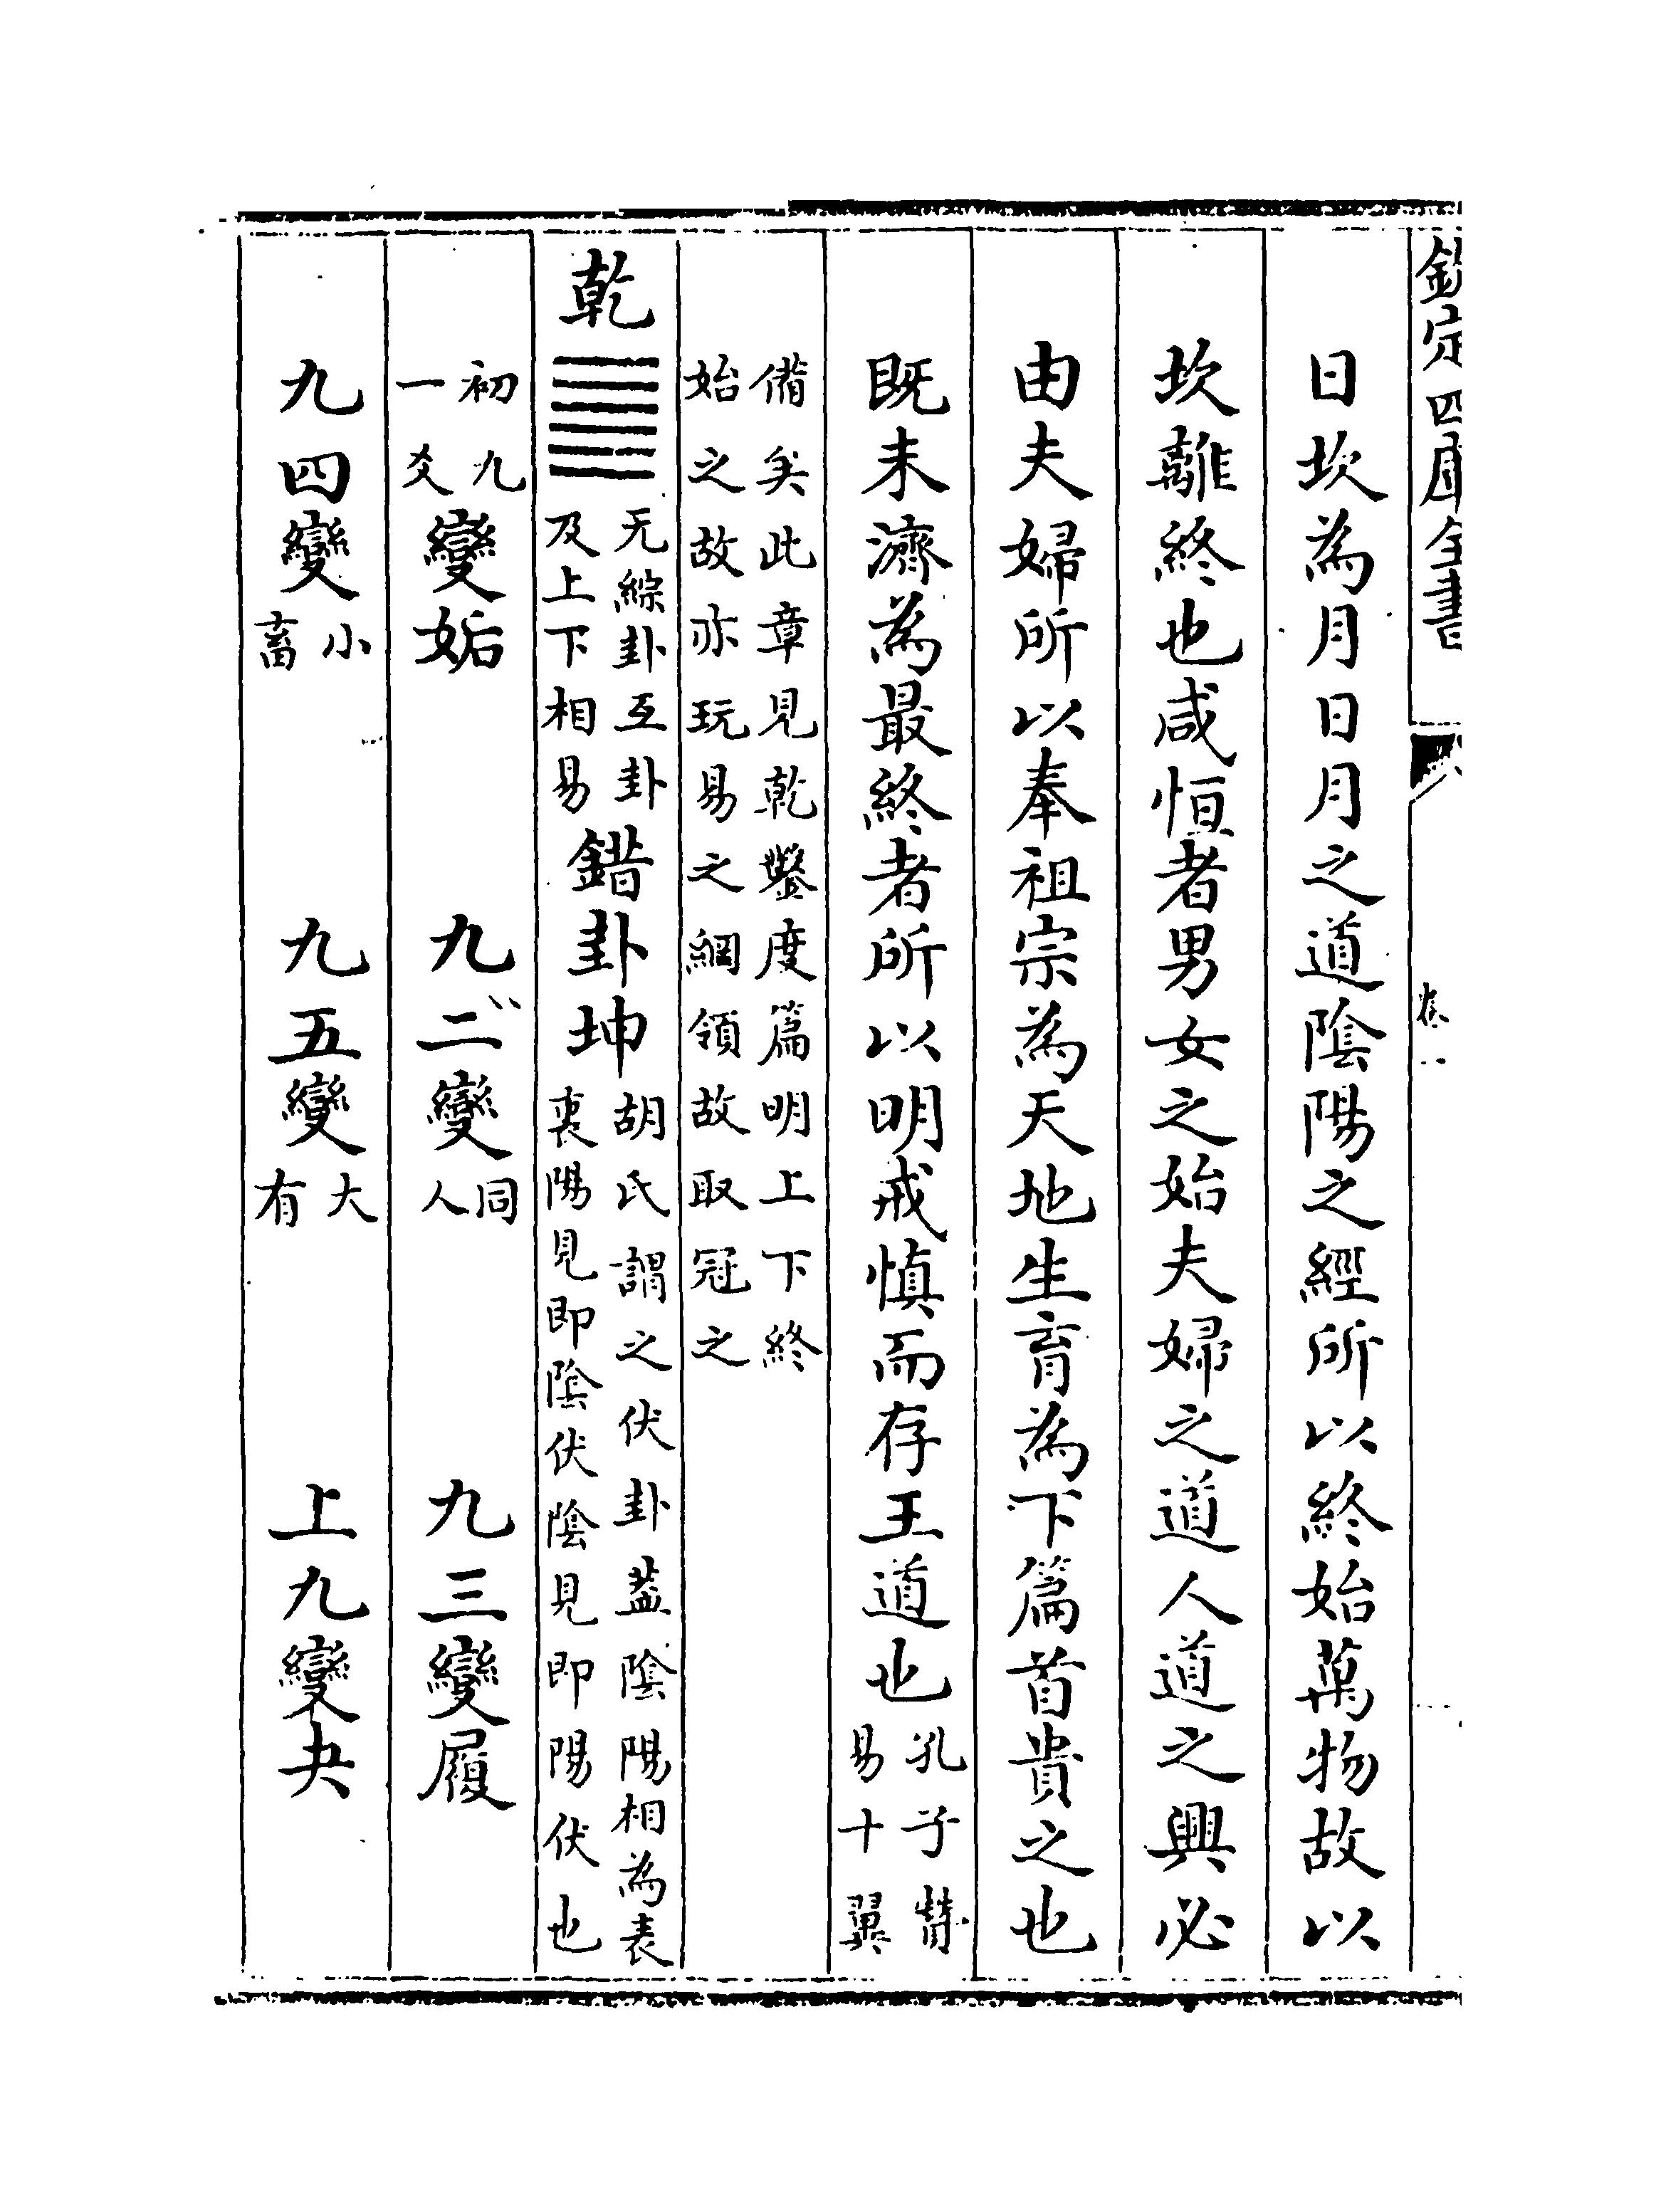 欽定四庫全書
卷一
日坎為月日月之道陰陽之經所以終始萬物故以
坎離終也咸恒者男女之始夫婦之道人道之興必
由夫婦所以奉祖宗為天地生育為下篇首貴之也
既未濟為最終者所以明戒慎而存王道也孔子贊
易十翼
備矣此章見乾鑿度篇明上下終
始之故亦玩易之綱領故取冠之
乾䷀无綜卦互卦
及上下相易
錯卦坤胡氏謂之伏卦蓋陰陽相為表
裏陽見即陰伏陰見即陽伏也
初九
一爻
變姤　九二變同人　九三變履
九四變小畜　九五變大有　上九變夬